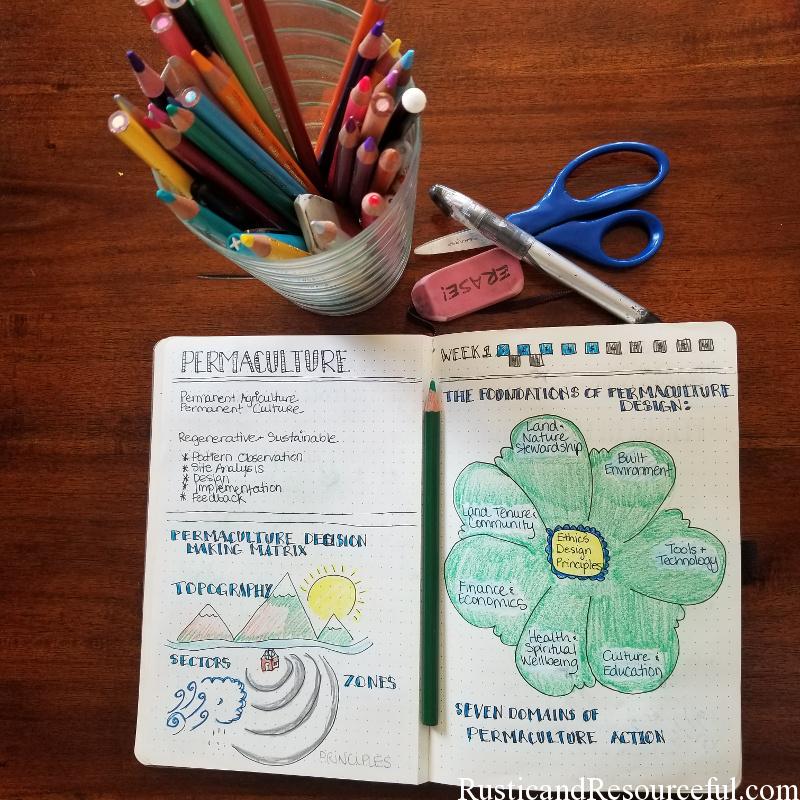 ERASE!
PERMACULTURE
Permanent Agriculture
Permanent Culture
Regenerative + Sustainable
* Pattern Observation
* Site Analysis
* Design
* Implementation
* Feedback
PERMACULTURE DECISION
MAKING MATRIX
TOPOGRAPHY
SECTORS
ZONES
PRINCIPLES
WEEK 1
THE FOUNDATIONS OF PERMACULTURE
DESIGN:
Land +
Nature
Stewardship
Built
Environment
Land Tenure &
Community
Ethics
Design
Principles
Tools +
Technology
Finance &
Economics
Health &
Spiritual
Wellbeing
Culture &
Education
SEVEN DOMAINS OF
PERMACULTURE ACTION
RusticandResourceful.com